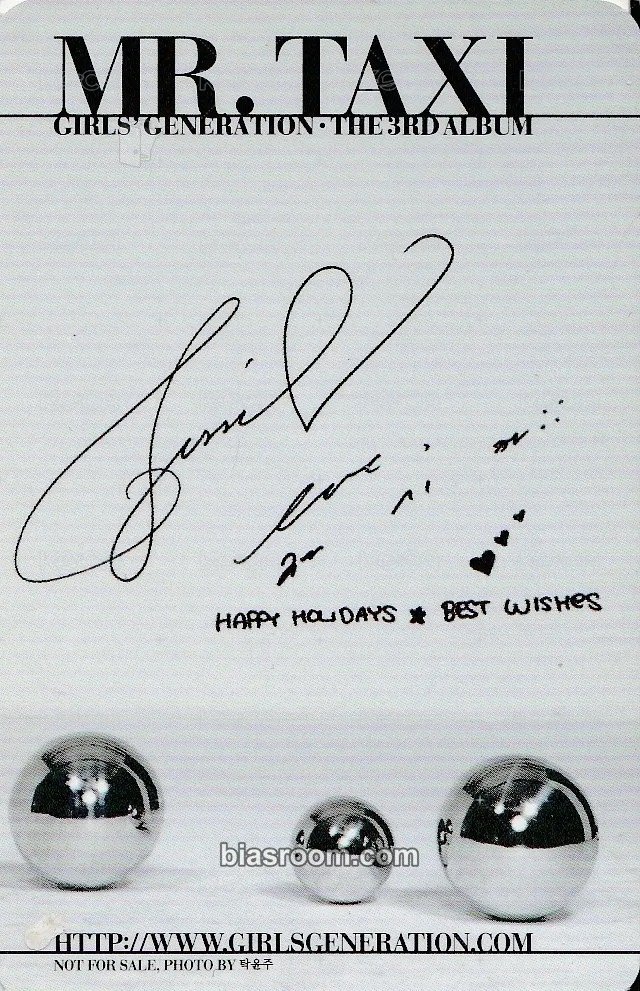 MR. TAXI
GIRLS' GENERATION · THE 3RD ALBUM
Jessi
love
HAPPY HOLIDAYS * BEST WISHES
biasroom.com
HTTP://WWW.GIRLSGENERATION.COM
NOT FOR SALE, PHOTO BY 탁윤주